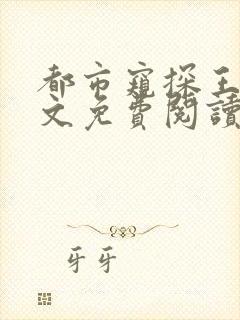 都市窺探王
文免費閱讀
牙牙